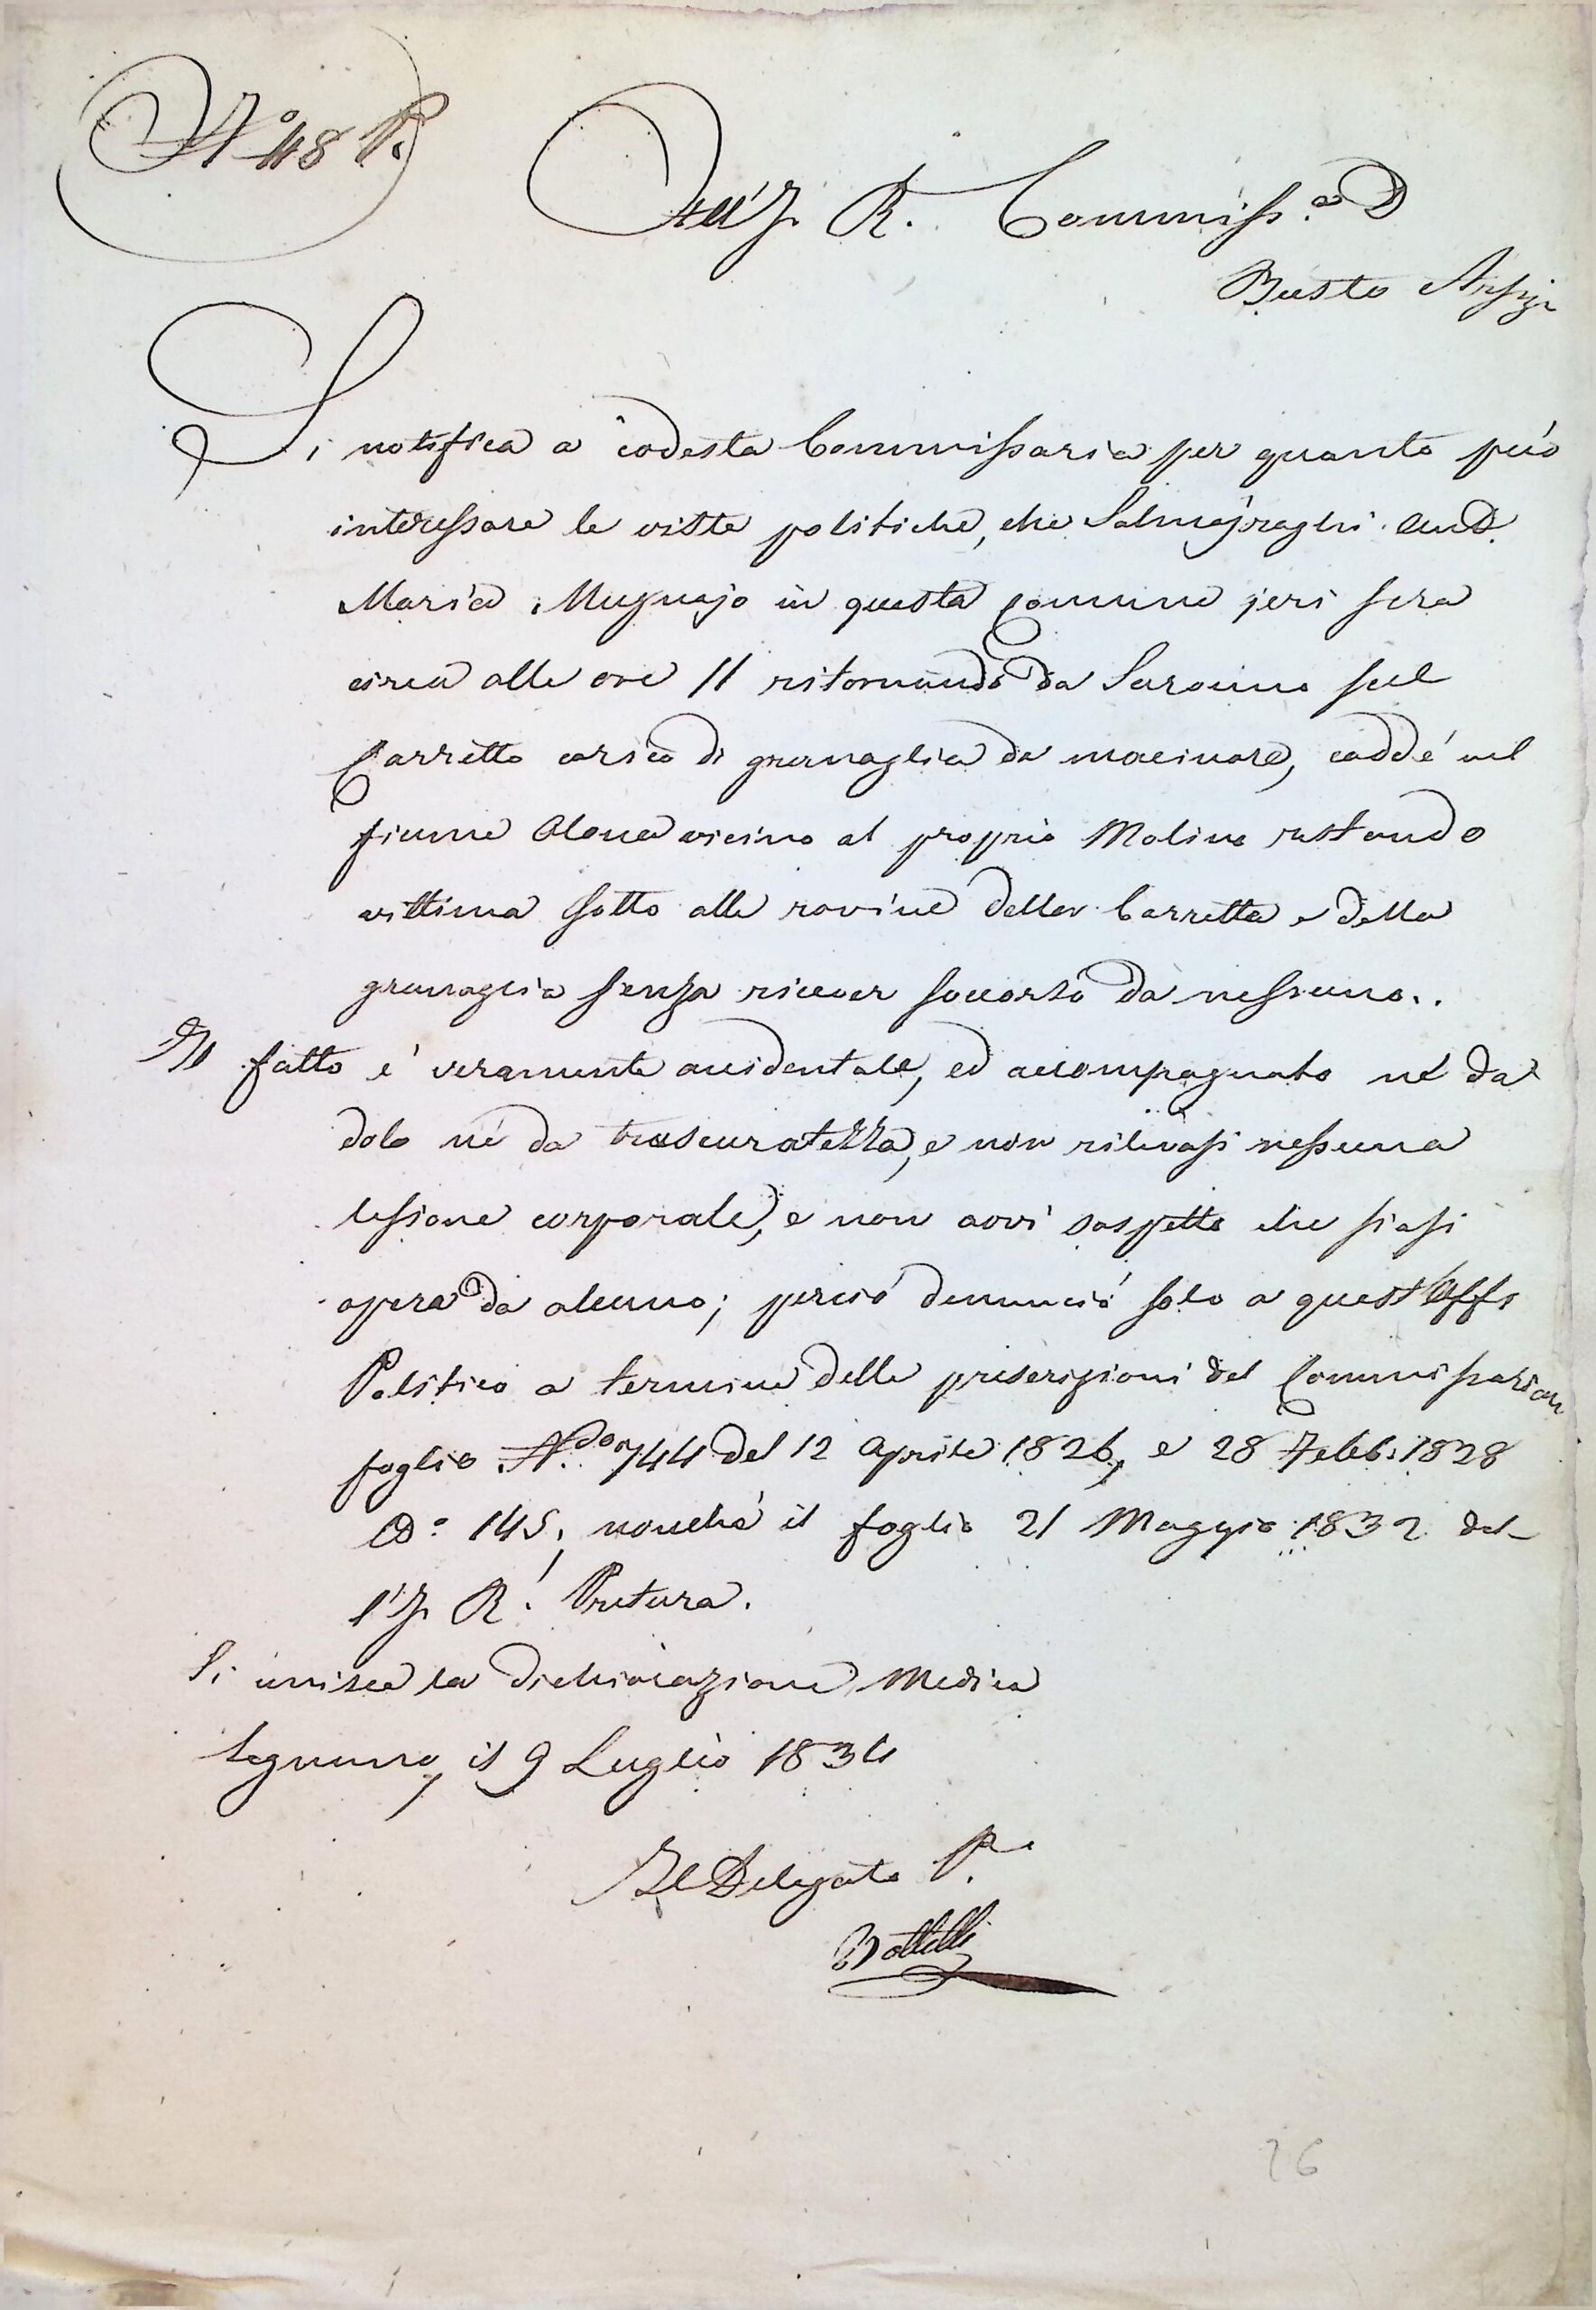 N.° 48 P.
All'I. R. Commiss.a D
Busto Arsizi
Si notifica a codesta Commissaria per quanto può
interessare le viste politiche, che Salmojraghi
Maria Mugnajo in questa Comune jeri sera
circa alle ore 11 ritornando da Saronno sul
Carretto carico di granaglia da macinare, cadde' nel
fiume Olona vicino al proprio Molino restando
vittima sotto alle rovine della Carretta e della
granaglia senza ricever soccorso da nessuno..
Il fatto e' veramente accidentale, ed accompagnato né da
dolo né da trascuratezza, e non rilevasi nessuna
lesione corporale, e non avvi sospetto che siasi
opera da alcuno; perciò denunciò solo a quest'Uff.
Politico a termine delle prescrizioni del Commissarial
foglio N.do 744 del 12 Aprile 1826, e 28 Febb. 1828
D.° 145, nonchè il foglio 21 Maggio 1832 del-
l'I. R. Pretura.
Si unisce la dichiarazione Medica
Legnano, il 9 Luglio 1834
Il Delegato P.
Bottelli
26